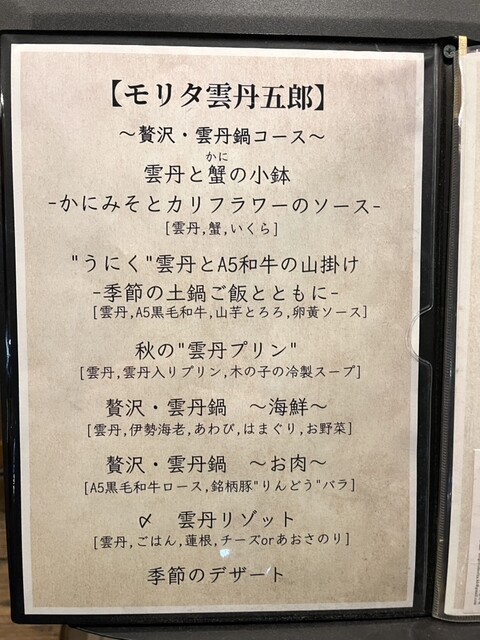 【モリタ雲丹五郎】
～贅沢・雲丹鍋コース～
かに
雲丹と蟹の小鉢
-かにみそとカリフラワーのソース-
[雲丹,蟹,いくら]
"うにく"雲丹とA5和牛の山掛け
-季節の土鍋ご飯とともに-
[雲丹,A5黒毛和牛,山芋とろろ,卵黄ソース]
秋の"雲丹プリン"
[雲丹,雲丹入りプリン,木の子の冷製スープ]
贅沢・雲丹鍋　～海鮮～
[雲丹,伊勢海老,あわび,はまぐり,お野菜]
贅沢・雲丹鍋　～お肉～
[A5黒毛和牛ロース,銘柄豚"りんどう"バラ]
〆　雲丹リゾット
[雲丹,ごはん,蓮根,チーズorあおさのり]
季節のデザート